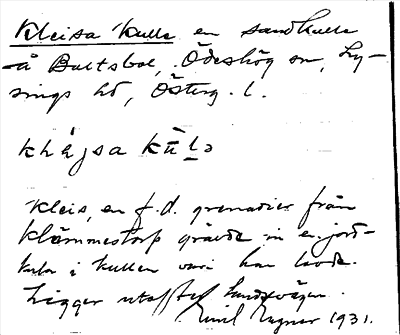 Kleisa kulle en sandkulle
å Bultsbol, Ödeshög sn, Ly-
sings hd, Österg. l.
khåjsa
Kleis, en f.d. grenadier från
Klämmestorp grävde in en jord-
kula i kullen vari han levde.
Ligger utefter landsvägen.
Emil Ungner 1931.